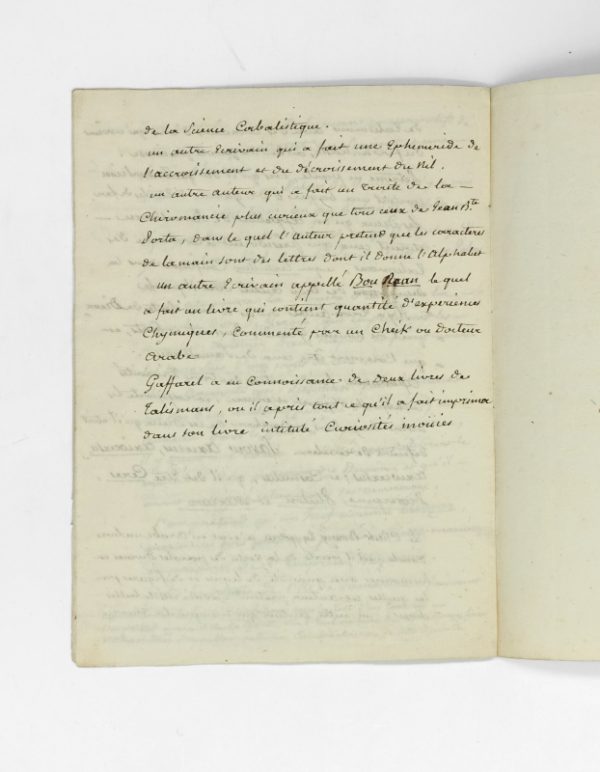 de la Science Cabalistique.
un autre Ecrivain qui a fait une Ephemeride de
l'accroissement et du décroissement du Nil.
un autre auteur qui a fait un Traité de la —
Chiromancie plus curieux que tous ceux de Jean B.te
Porta, dans le quel l'auteur pretend que les caracteres
de la main sont des lettres dont il donne l'Alphabet
un autre Ecrivain appellé le quel
a fait un livre qui contient quantité d'experiences
Chymiques, Commenté par un Cheik ou Docteur
Arabe
Gaffarel a eu Connoissance de Deux livres de
Talismans, ou il a pris tout ce qu'il a fait imprimer
dans son livre intitulé Curiosités inoüies